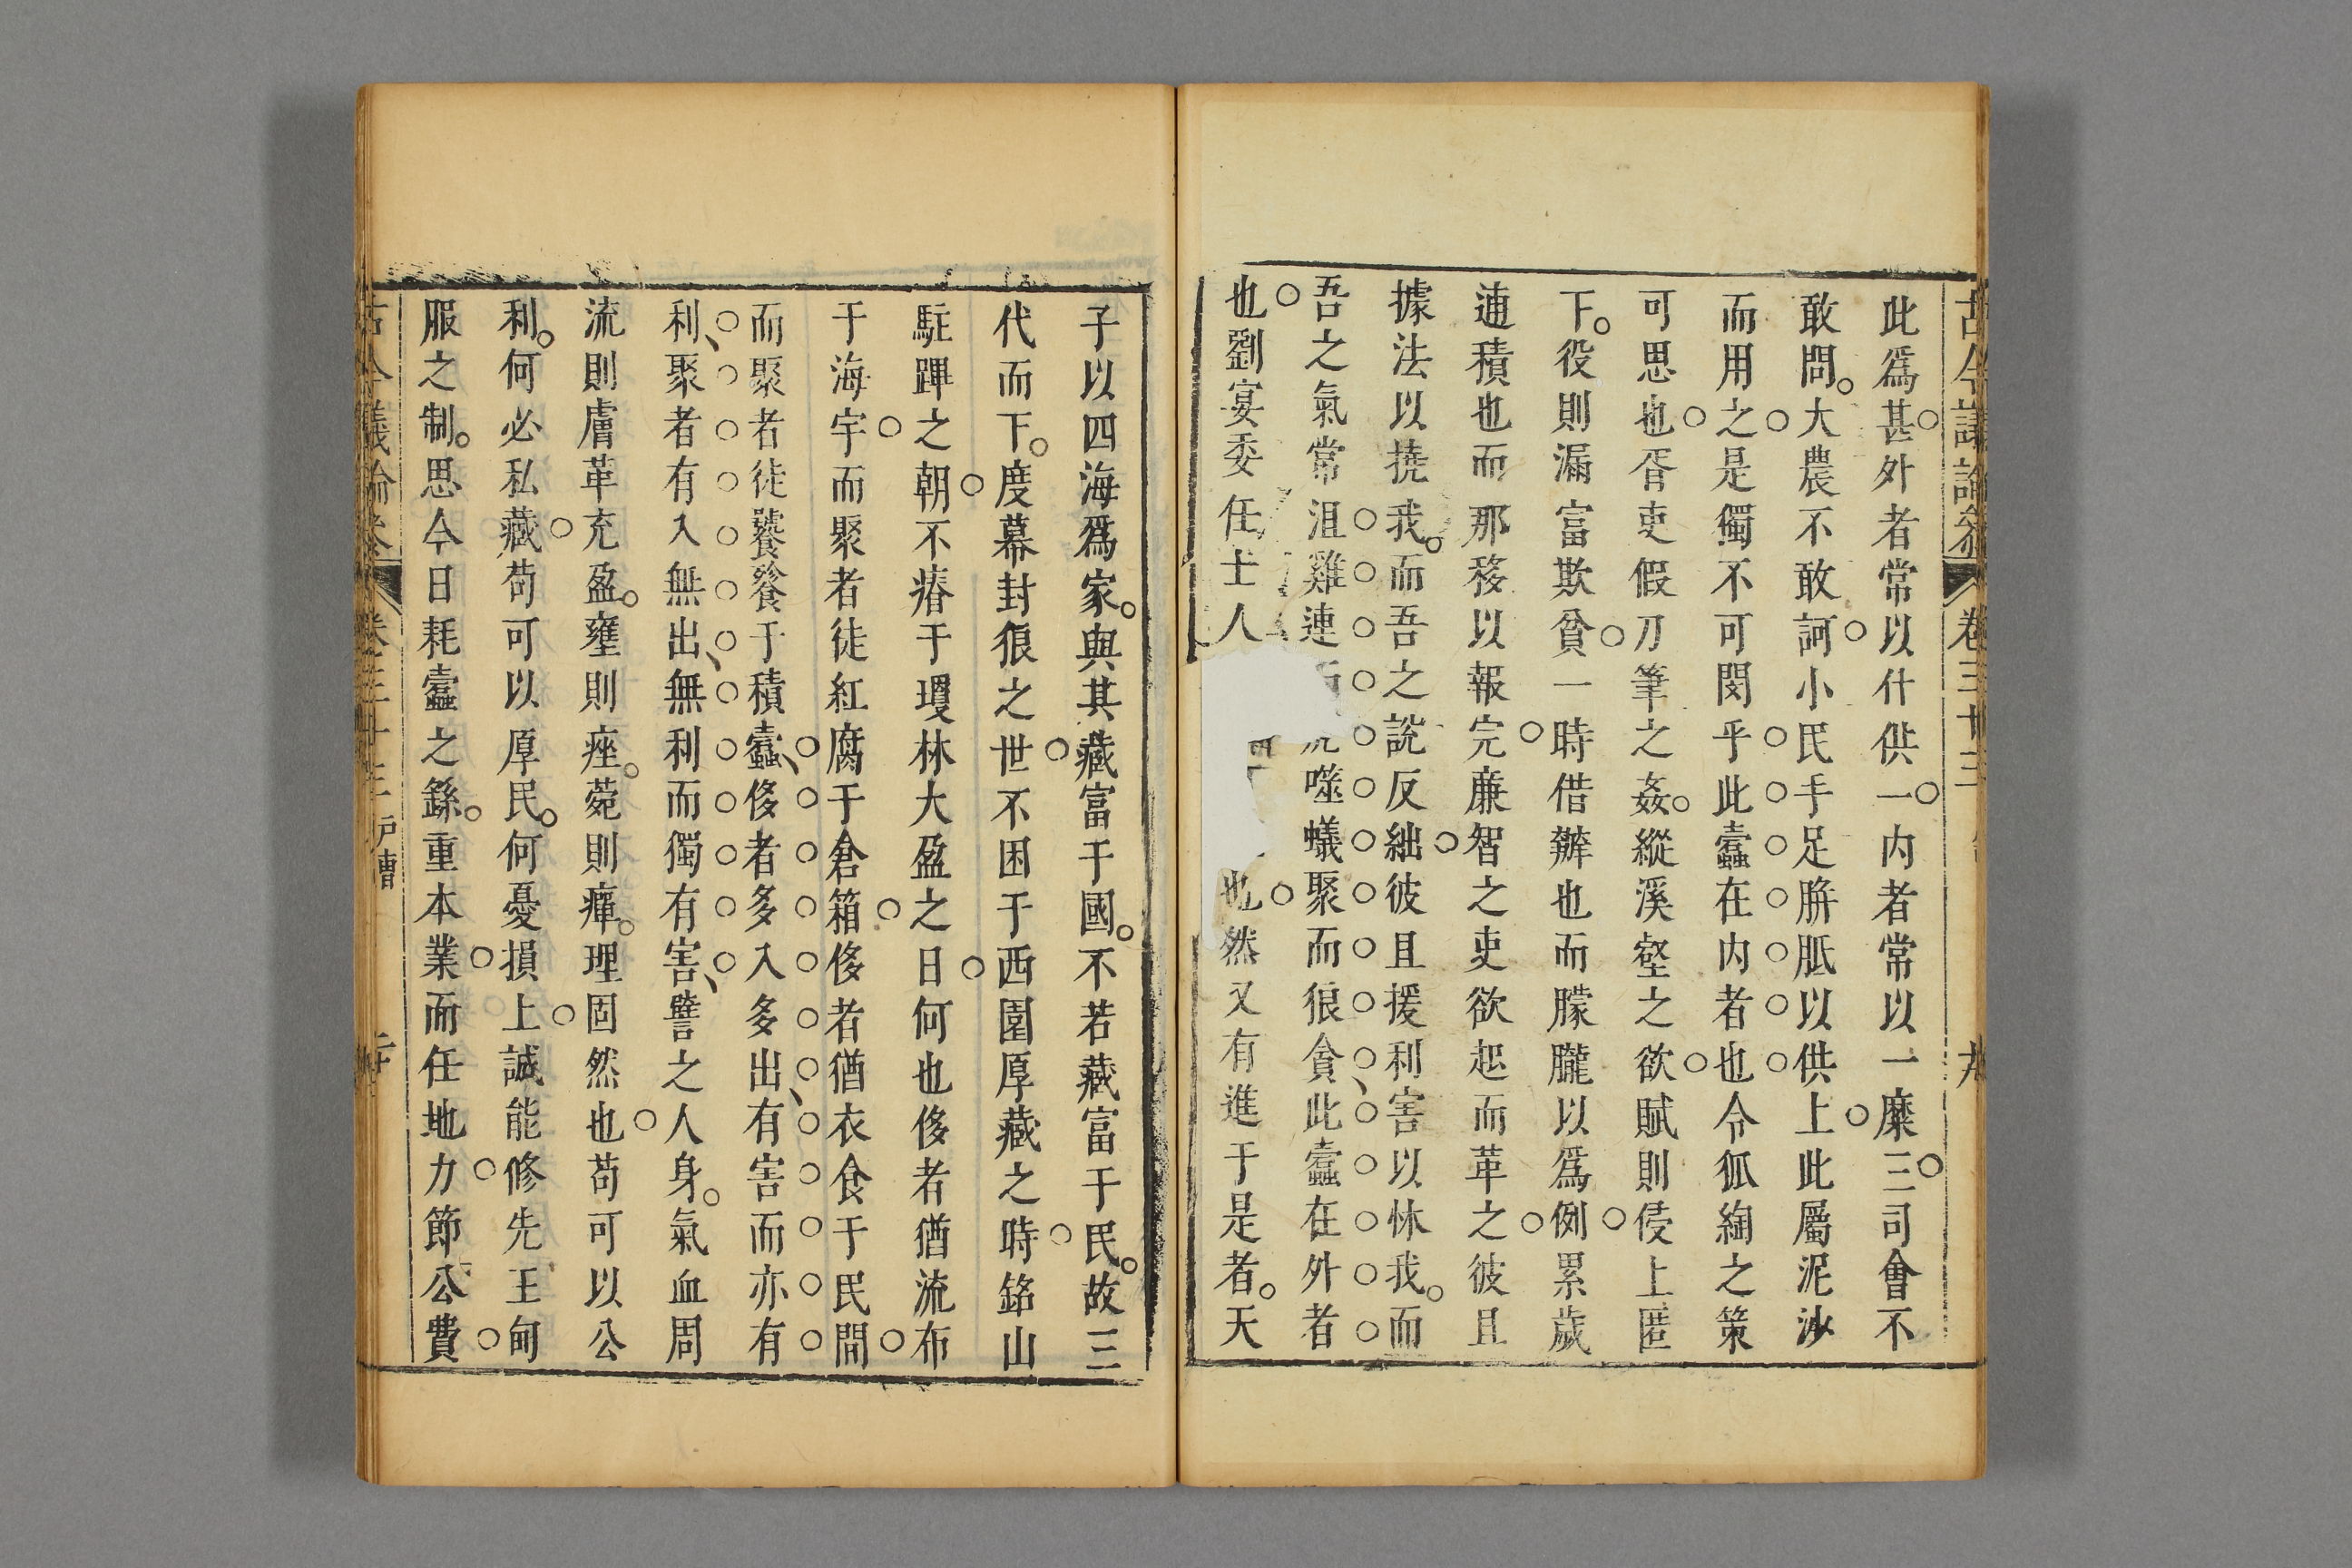 古今議論參 卷三十三 九
此爲甚外者常以什供一内者常以一糜三司會不
敢問大農不敢訶小民手足胼胝以供上此屬泥沙
而用之是獨不可閔乎此蠹在内者也令狐綯之策
可思也胥吏假刀筆之姦縱溪壑之欲賦則侵上匿
下役則漏富欺貧一時借辦也而朦朧以爲例累歲
逋積也而那移以報完廉智之吏欲起而革之彼且
據法以撓我而吾之說反絀彼且援利害以怵我而
吾之氣常沮雞連噬蟻聚而狠貪此蠹在外者
也劉宴委任士人也然又有進于是者天
子以四海爲家與其藏富于國不若藏富于民故三
代而下度幕封狠之世不困于西園厚藏之時銘山
駐蹕之朝不瘠于瓊林大盈之日何也侈者猶流布
于海宇而聚者徒紅腐于倉箱侈者猶衣食于民間
而聚者徒饕餮于積蠹侈者多入多出有害而亦有
利聚者有入無出無利而獨有害譬之人身氣血周
流則膚革充盈壅則痤菀則癉理固然也苟可以公
利何必私藏苟可以厚民何憂損上誠能修先王甸
服之制思今日耗蠹之繇重本業而任地力節公費
古今議論參 卷三十三 戸曹 二十